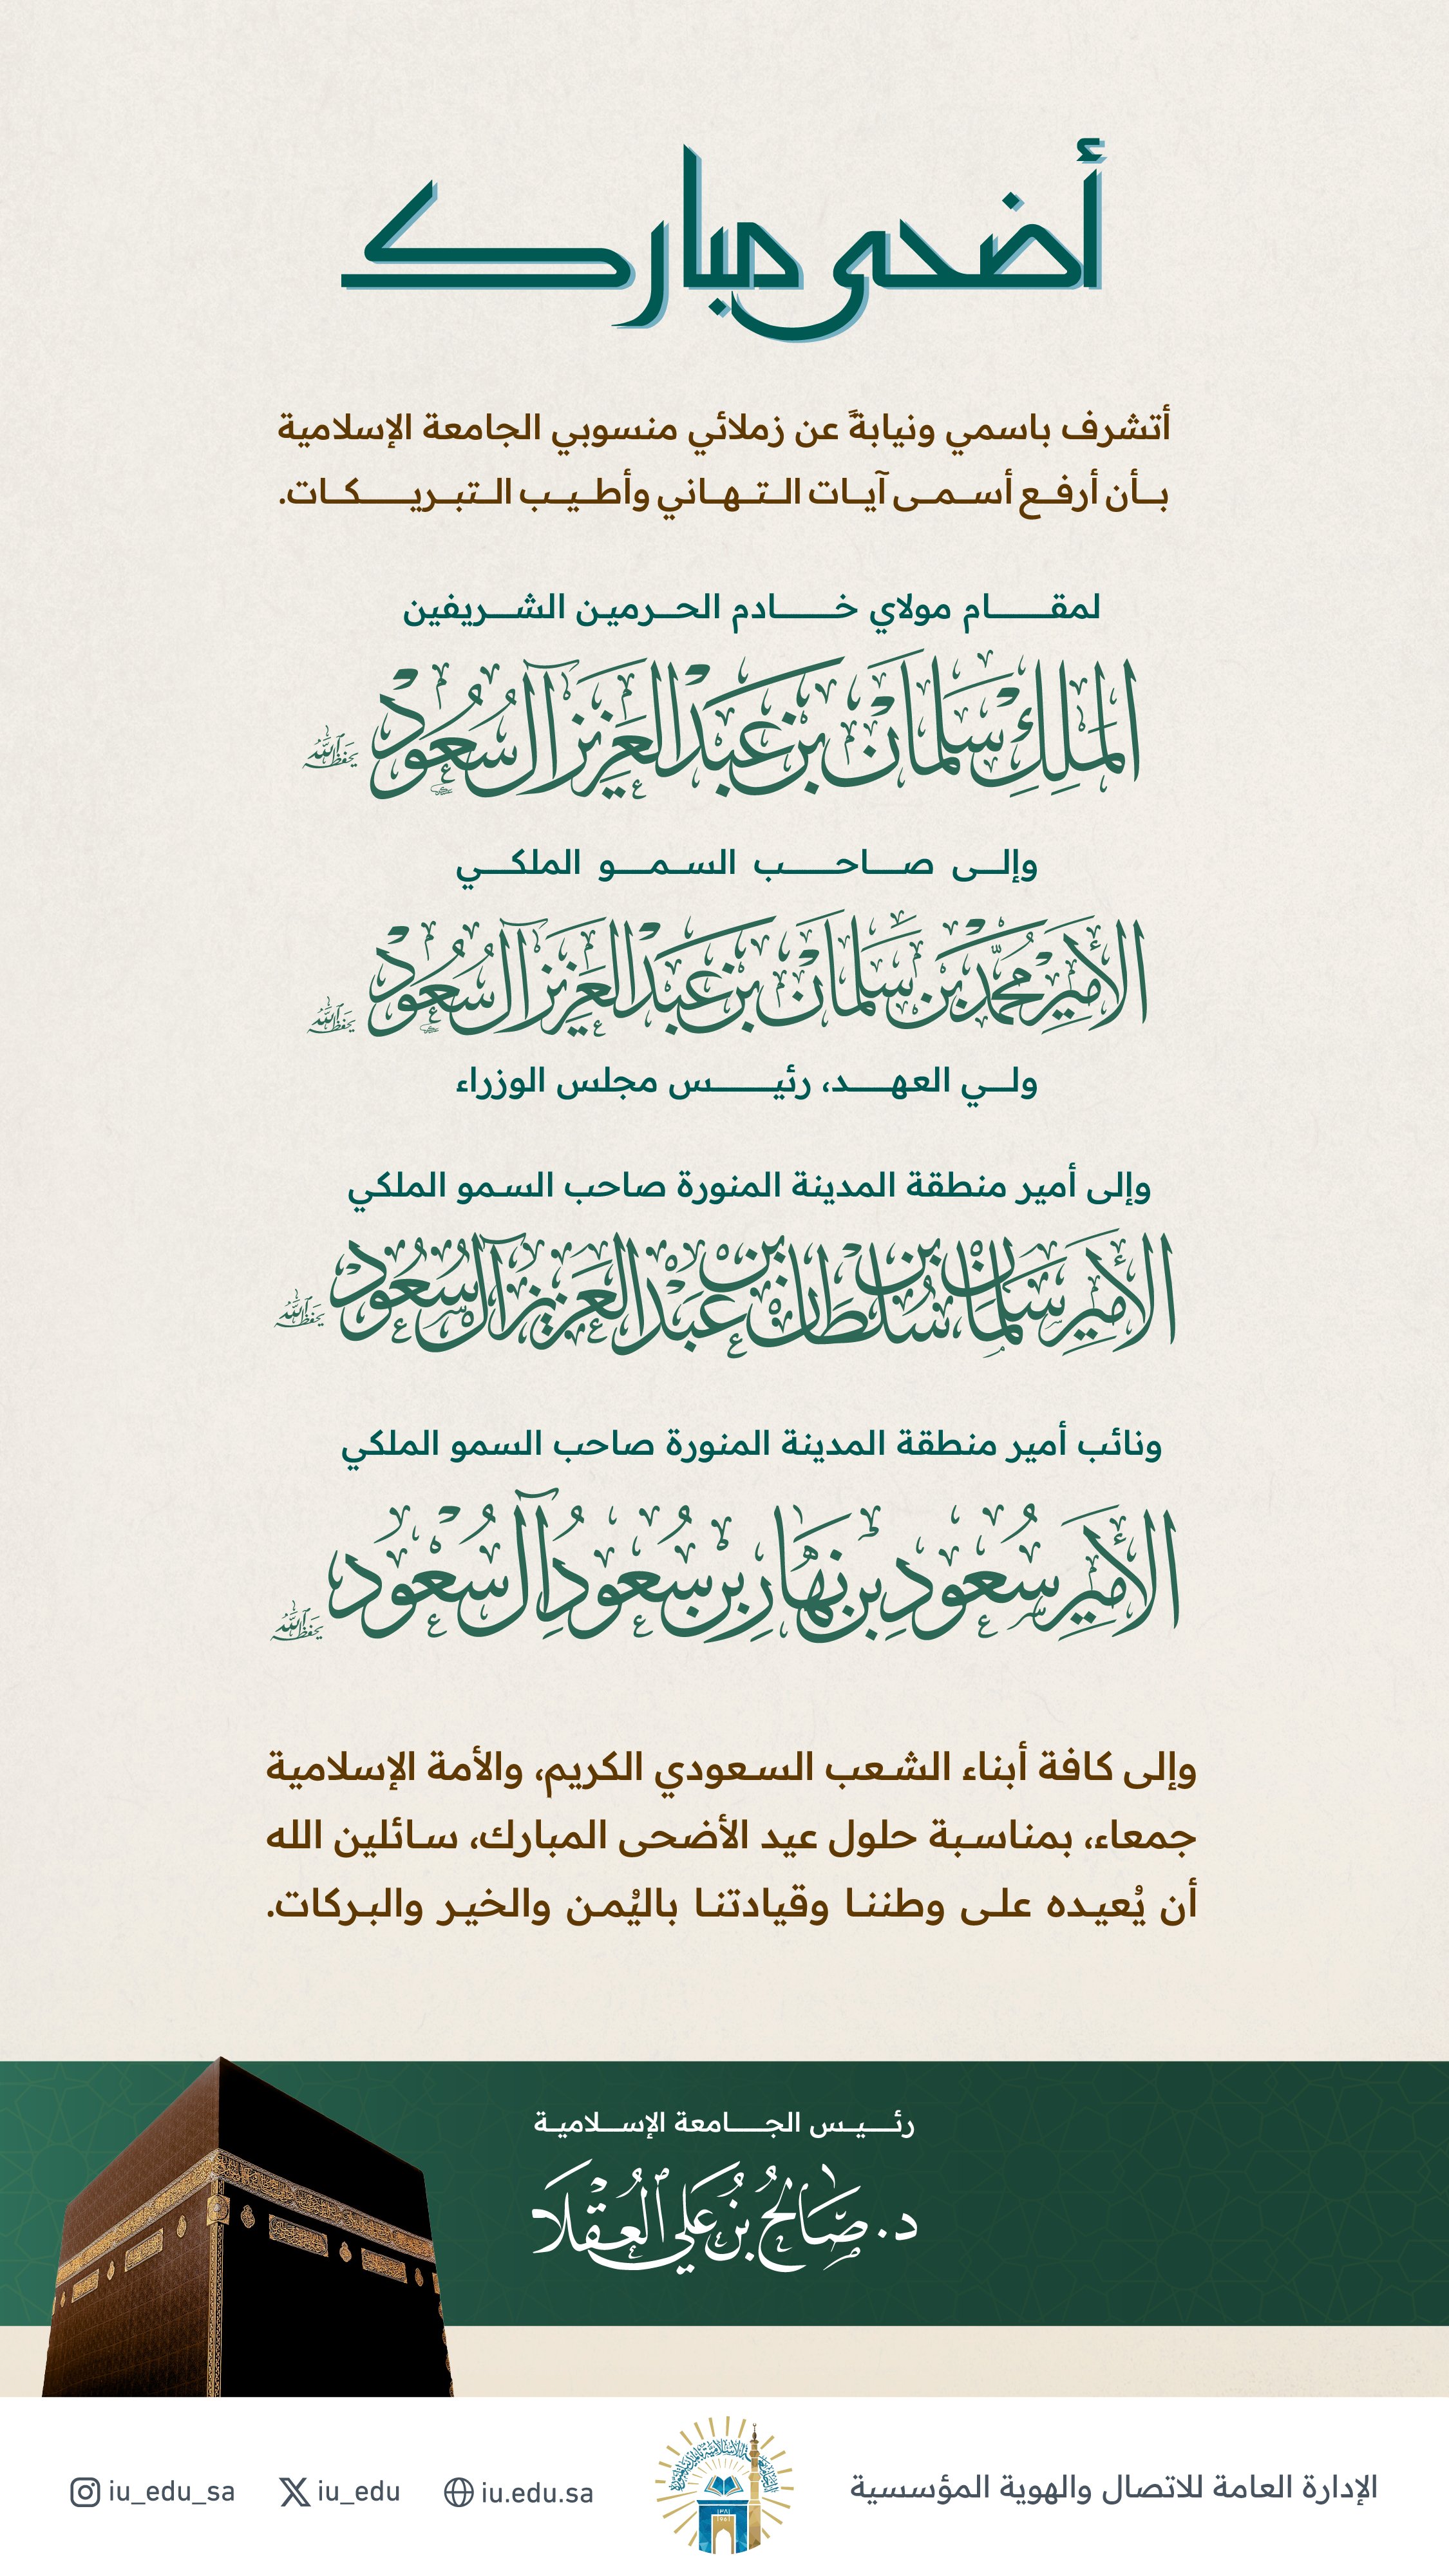 أضحى مبارك
أتشرف باسمي ونيابةً عن زملائي منسوبي الجامعة الإسلامية
بأن أرفع أسمى آيات التهاني وأطيب التبريكات.
لمقام مولاي خادم الحرمين الشريفين
الملك سلمان بن عبدالعزيز آل سعود يحفظه الله
وإلى صاحب السمو الملكي
الأمير محمد بن سلمان بن عبدالعزيز آل سعود يحفظه الله
ولي العهد، رئيس مجلس الوزراء
وإلى أمير منطقة المدينة المنورة صاحب السمو الملكي
الأمير سلمان بن سلطان بن عبدالعزيز آل سعود يحفظه الله
ونائب أمير منطقة المدينة المنورة صاحب السمو الملكي
الأمير سعود بن نهار بن سعود آل سعود يحفظه الله
وإلى كافة أبناء الشعب السعودي الكريم، والأمة الإسلامية
جمعاء، بمناسبة حلول عيد الأضحى المبارك، سائلين الله
أن يُعيده على وطننا وقيادتنا باليُمن والخير والبركات.
رئيس الجامعة الإسلامية
د. صالح بن علي العقلا
الإدارة العامة للاتصال والهوية المؤسسية
iu.edu.sa
iu_edu
iu_edu_sa